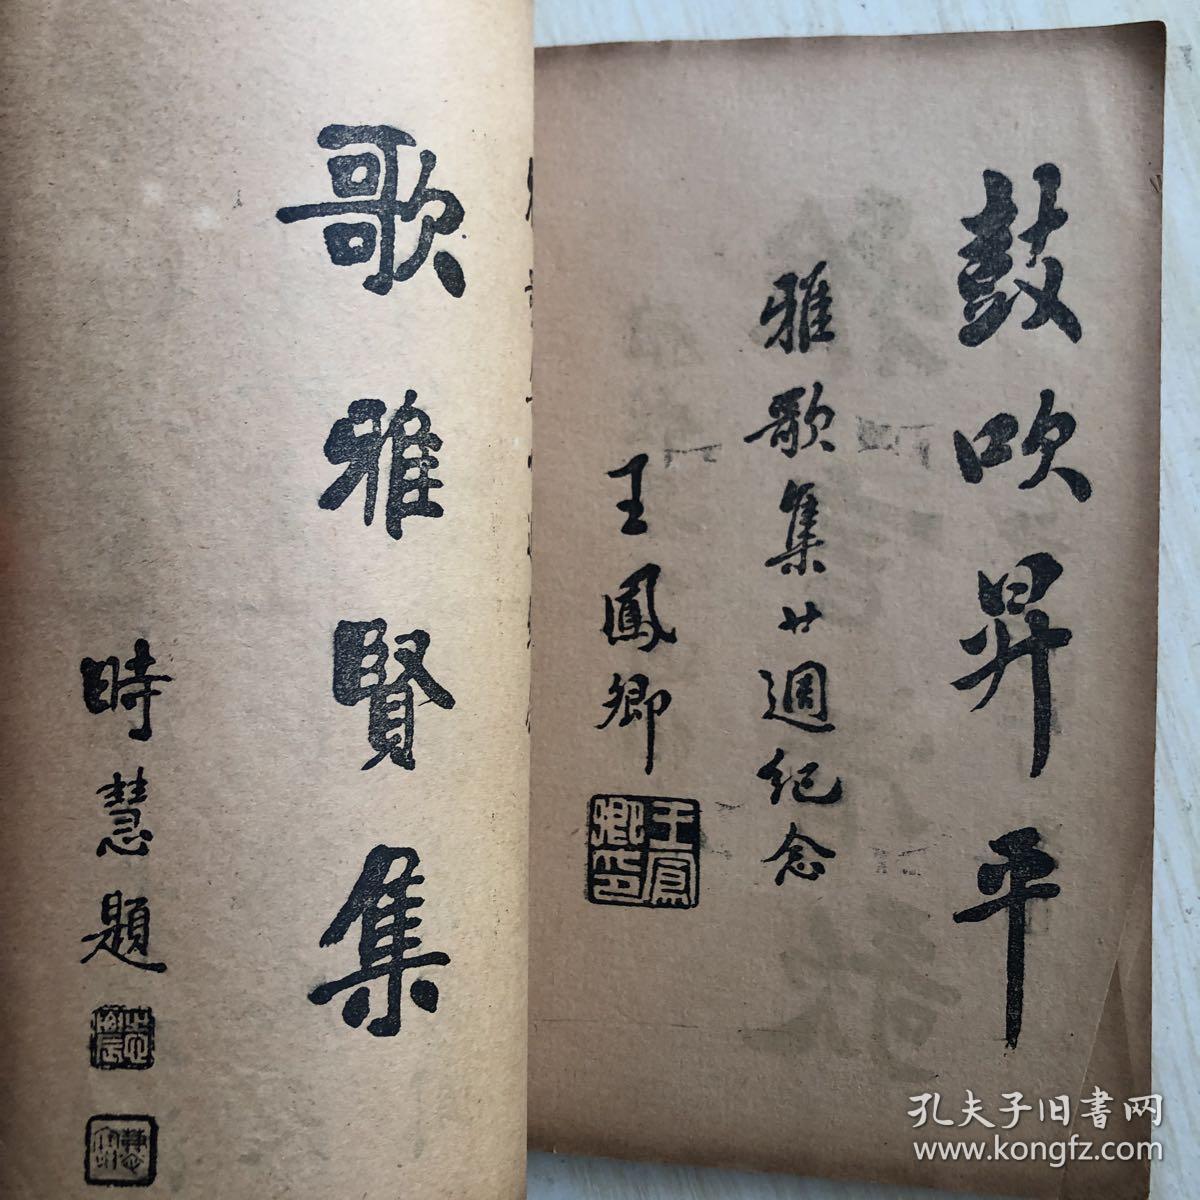 鼓吹昇平
雅歌集廿週紀念
王鳳卿
王鳳卿印
歌雅賢集
時慧題
孔夫子旧书网
www.kongfz.com